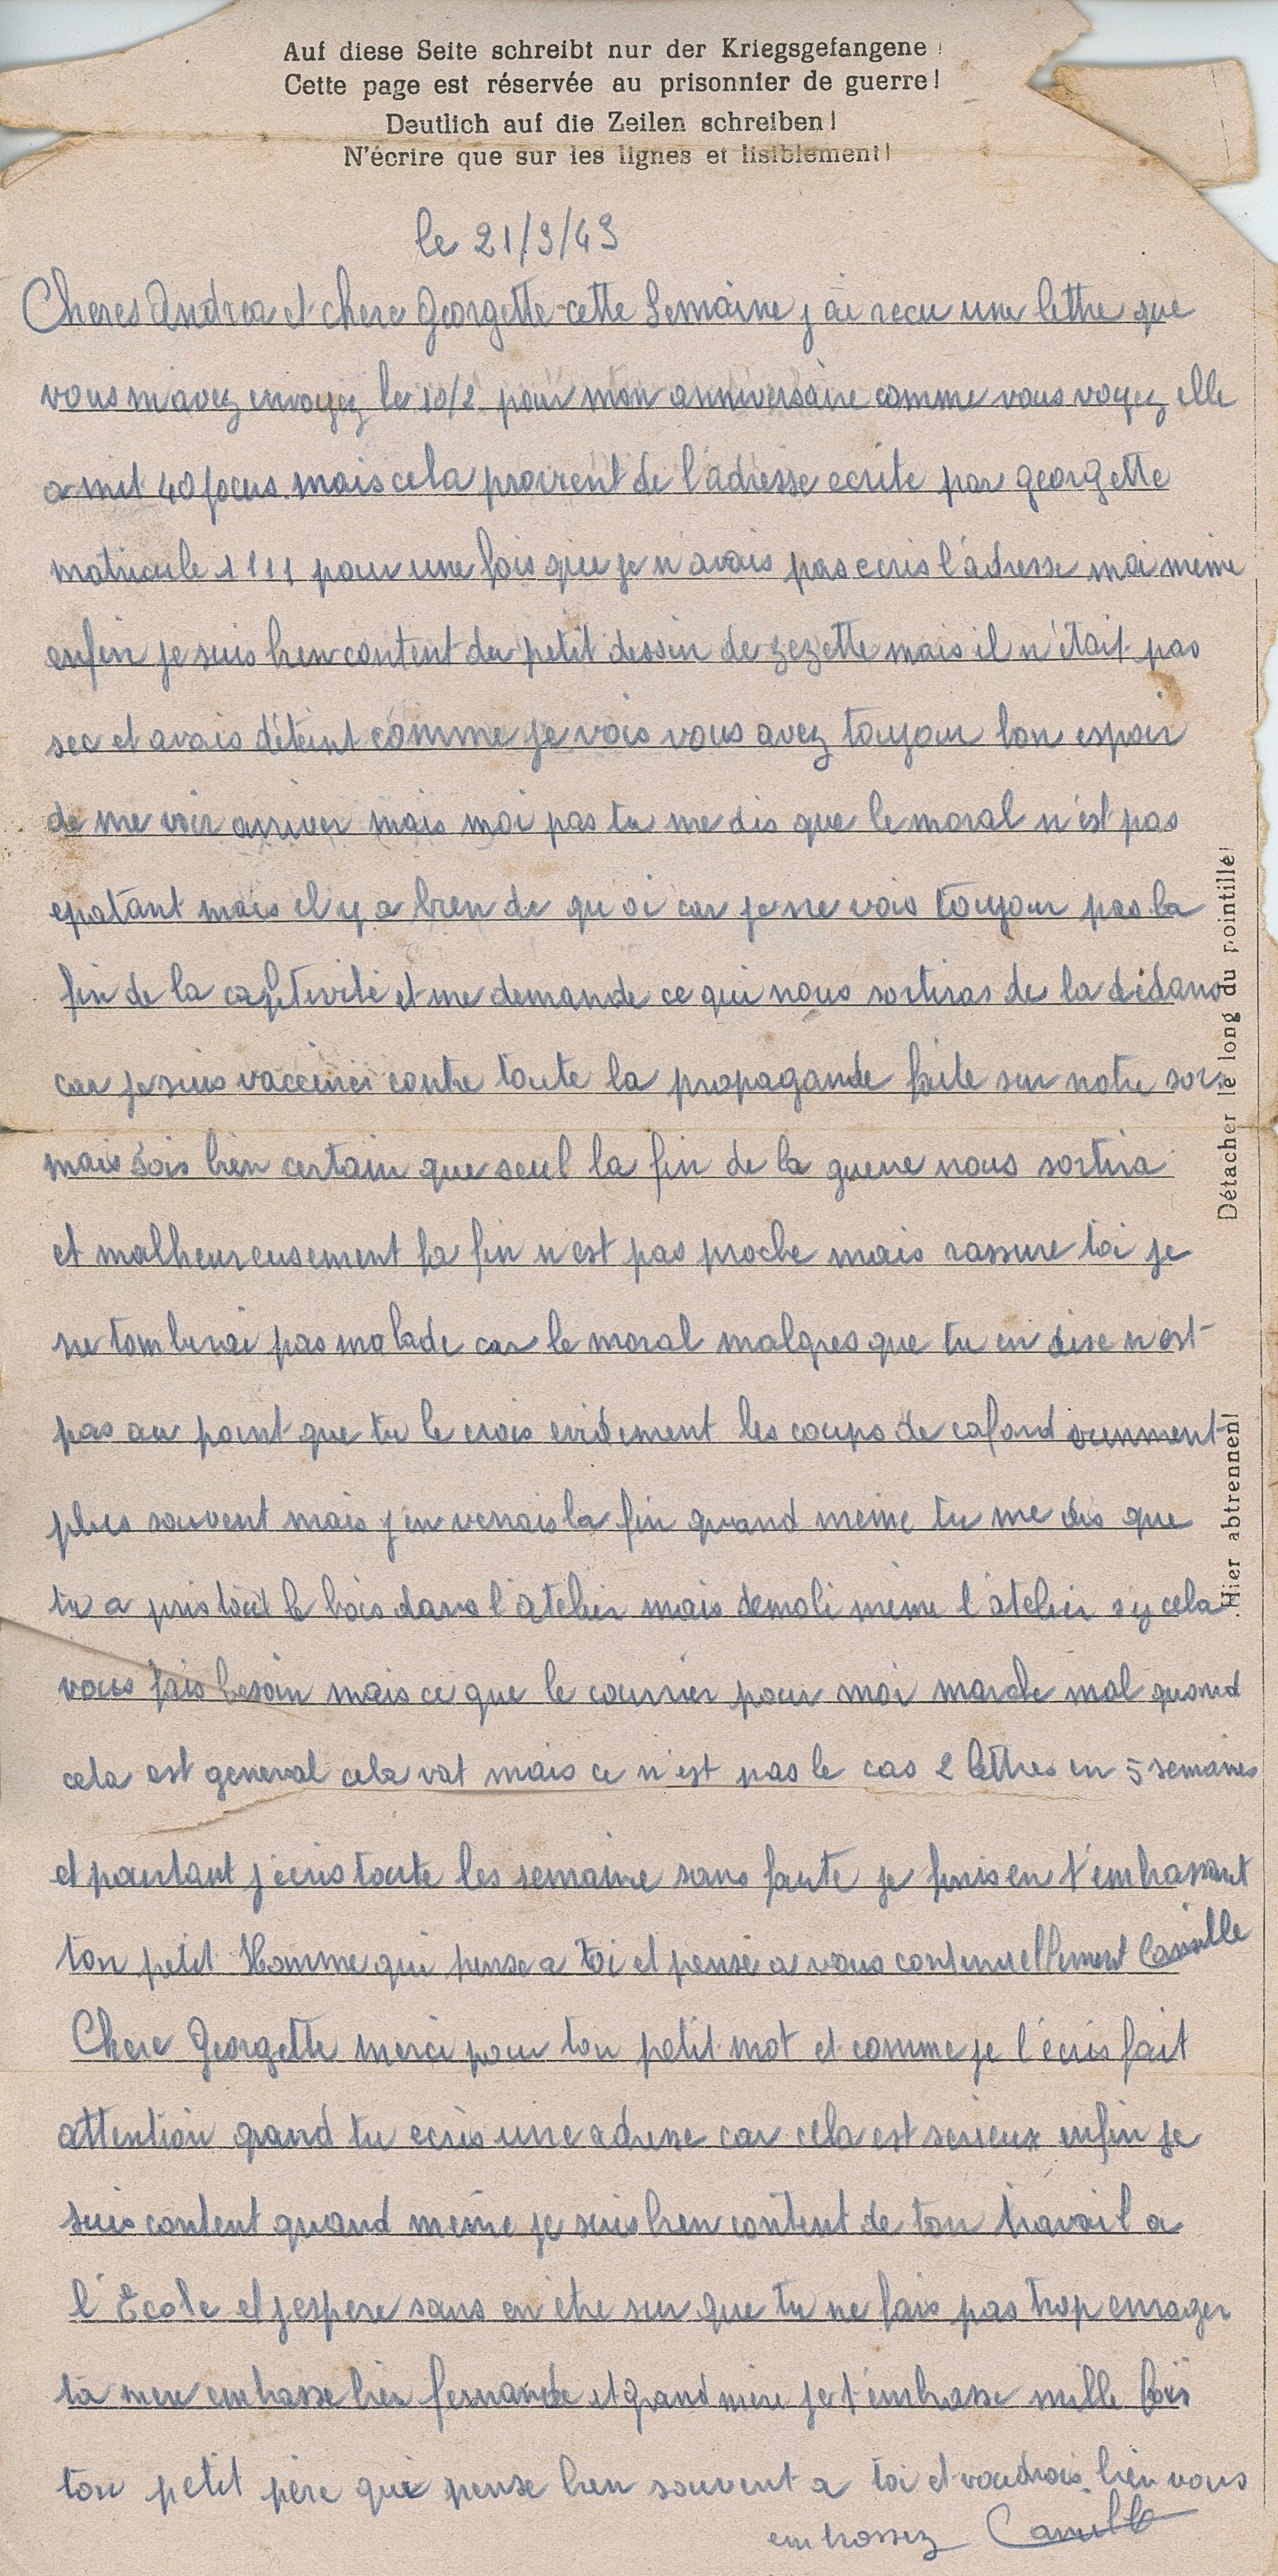 Auf diese Seite schreibt nur der Kriegsgefangene!
Cette page est réservée au prisonnier de guerre!
Deutlich auf die Zeilen schreiben!
N'écrire que sur les lignes et lisiblement!
le 21/3/43
Cheres Andrea et chere Georgette cette Semaine j'ai recu une lettre que
vous m'avez envoyez le 10/2 pour mon anniversaire comme vous voyez elle
a mit 40 jours mais cela provient de l'adresse ecrite par georgette
matricule 1111 pour une fois que je n'avais pas ecris l'adresse moi meme
enfin je suis bien content du petit dessin de zezette mais il n'était pas
sec et avais déteint comme je vois vous avez toujour bon espoir
de me voir arriver mais moi pas tu me dis que le moral n'est pas
epatant mais il y a bien de quoi car je ne vois toujour pas la
fin de la captivité et me demande ce qui nous sortiras de la dédans
car je suis vacciner contre toute la propagande faite sur notre sort
mais sois bien certain que seul la fin de la guerre nous sortira
et malheureusement la fin n'est pas proche mais rassure toi je
ne tomberai pas malade car le moral malgres que tu en dise n'est
pas au point que tu le crois evidement les coups de cafard viennent
plus souvent mais j'en verrais la fin quand meme tu me dis que
tu a pris tout le bois dans l'atelier mais demoli meme l'atelier sy cela
vous fais besoin mais ce que le courrier pour moi marche mal quand
cela est general cela vat mais ce n'est pas le cas 2 lettres en 5 semaines
et pourtant j'écris toute les semaine sans faute je finis en t'embrassant
ton petit Homme qui pense a toi et pense a vous continuellement Camille
Chere Georgette merci pour ton petit mot et comme je l'écris fait
attention quand tu ecris une adresse car cela est serieux enfin je
suis content quand meme je suis bien content de ton travail a
l'Ecole et j'espere sans en être sur que tu ne fais pas trop enrager
ta mere embrasse bien fernande et grand mere je t'embrasse mille fois
ton petit père qui pense bien souvent a toi et voudrais bien vous
embrassez Camille
Détacher le long du pointillé!
Hier abtrennen!